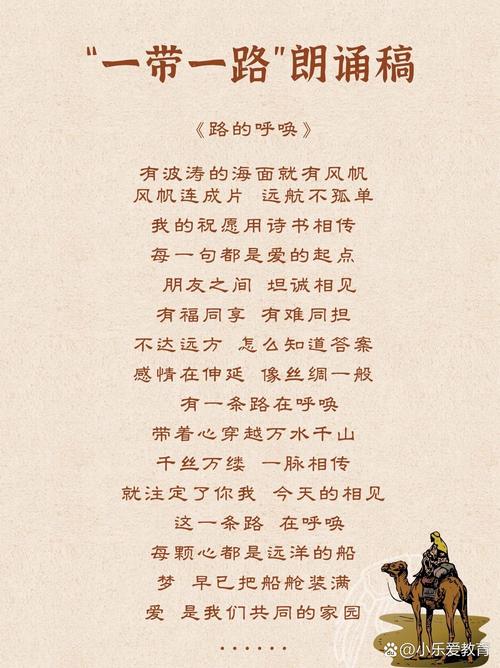 “一带一路”朗诵稿
《路的呼唤》
有波涛的海面就有风帆
风帆连成片 远航不孤单
我的祝愿用诗书相传
每一句都是爱的起点
朋友之间 坦诚相见
有福同享 有难同担
不达远方 怎么知道答案
感情在伸延 像丝绸一般
有一条路在呼唤
带着心穿越万水千山
千丝万缕 一脉相传
就注定了你我 今天的相见
这一条路 在呼唤
每颗心都是远洋的船
梦 早已把船舱装满
爱 是我们共同的家园
······
@小乐爱教育